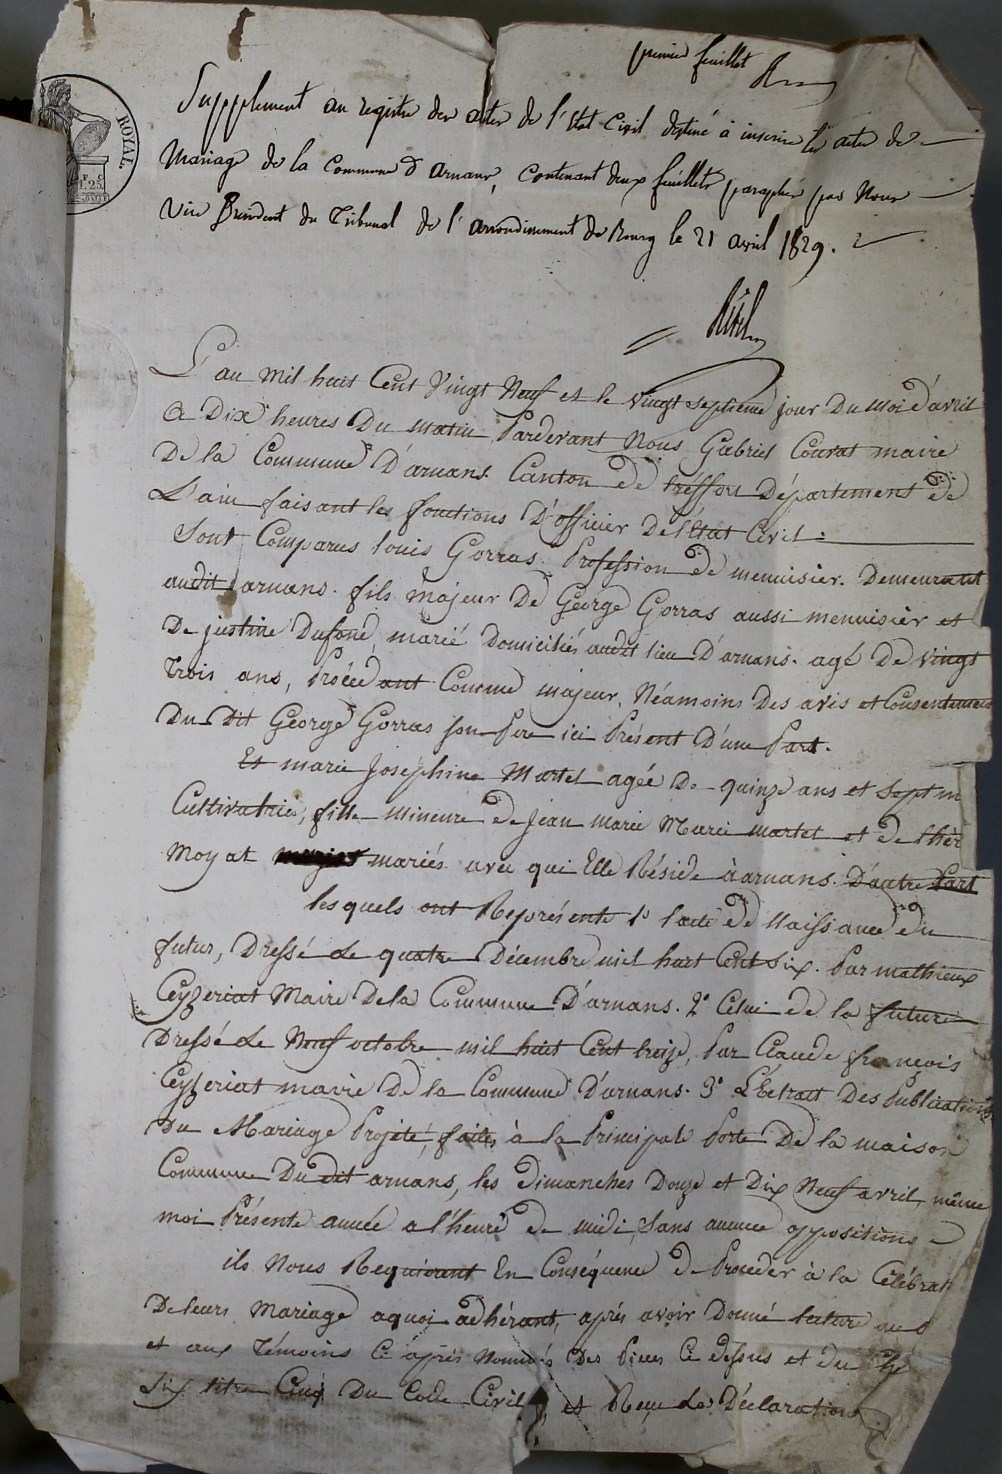 premier feuillet
ROYAL
Supplement au registre des actes de l'Etat Civil destiné à inscrire les actes de
Mariage de la Commune d'arnans, contenant deux feuillets paraphés par Nous
Vice President du Tribunal de l'arrondissement de Bourg le 21 avril 1829.
L'an mil huit Cent Vingt Neuf et le vingt septième jour Du moi d'avril
a Dix heures Du matin Pardevant Nous Gabriel Couvat maire
De la Commune D'arnans. Canton de treffort Département de
L'ain faisant les fonctions D'officier De l'état Civil :
Sont Comparus louis Gorras. Profession de menuisier. Demeurant
audit arnans. fils majeur De George Gorras aussi menuisier et
De justine Dufour, marié Domiciliés audit lieu D'arnans. agé De vingt
trois ans, Procédant Comme majeur, Néamoins Des avis et Consentement
Du Dit George Gorras son Pere ici Présent D'une Part.
Et marie Josephine Martel agée De quinze ans et sept m
Cultivatrice, fille mineure de jean marie Marie martel et de ther
Moyat mariés avec qui Elle Réside à arnans. D'autre Part
lesquels ont Représenté 1º l'acte de Naissance du
futur, Dressé Le quatre Décembre mil huit Cent Six. Par mathieux
Ceyzeriat Maire De la Commune D'arnans. 2º Celui de la future
Dressé Le Neuf octobre mil huit Cent treize, Par Claude françois
Ceyzeriat maire De la Commune D'arnans. 3º L'Extrait Des Publications
Du Mariage Projeté, faites à la Principale Porte De la maison
Commune Du dit arnans, les Dimanches Douze et Dix Neuf avril, même
moi Présente année a l'heure de midi, sans aucune oppositions
ils Nous Requierent En Conséquence de Proceder à la Célébrat
De leurs Mariage aquoi adhérant, après avoir Donné lecture
et aux Témoins Ci après Nommés Des Pieces Ci dessus et du
Six titre Cinq Du Code Civil, et Reçu Les Déclarations